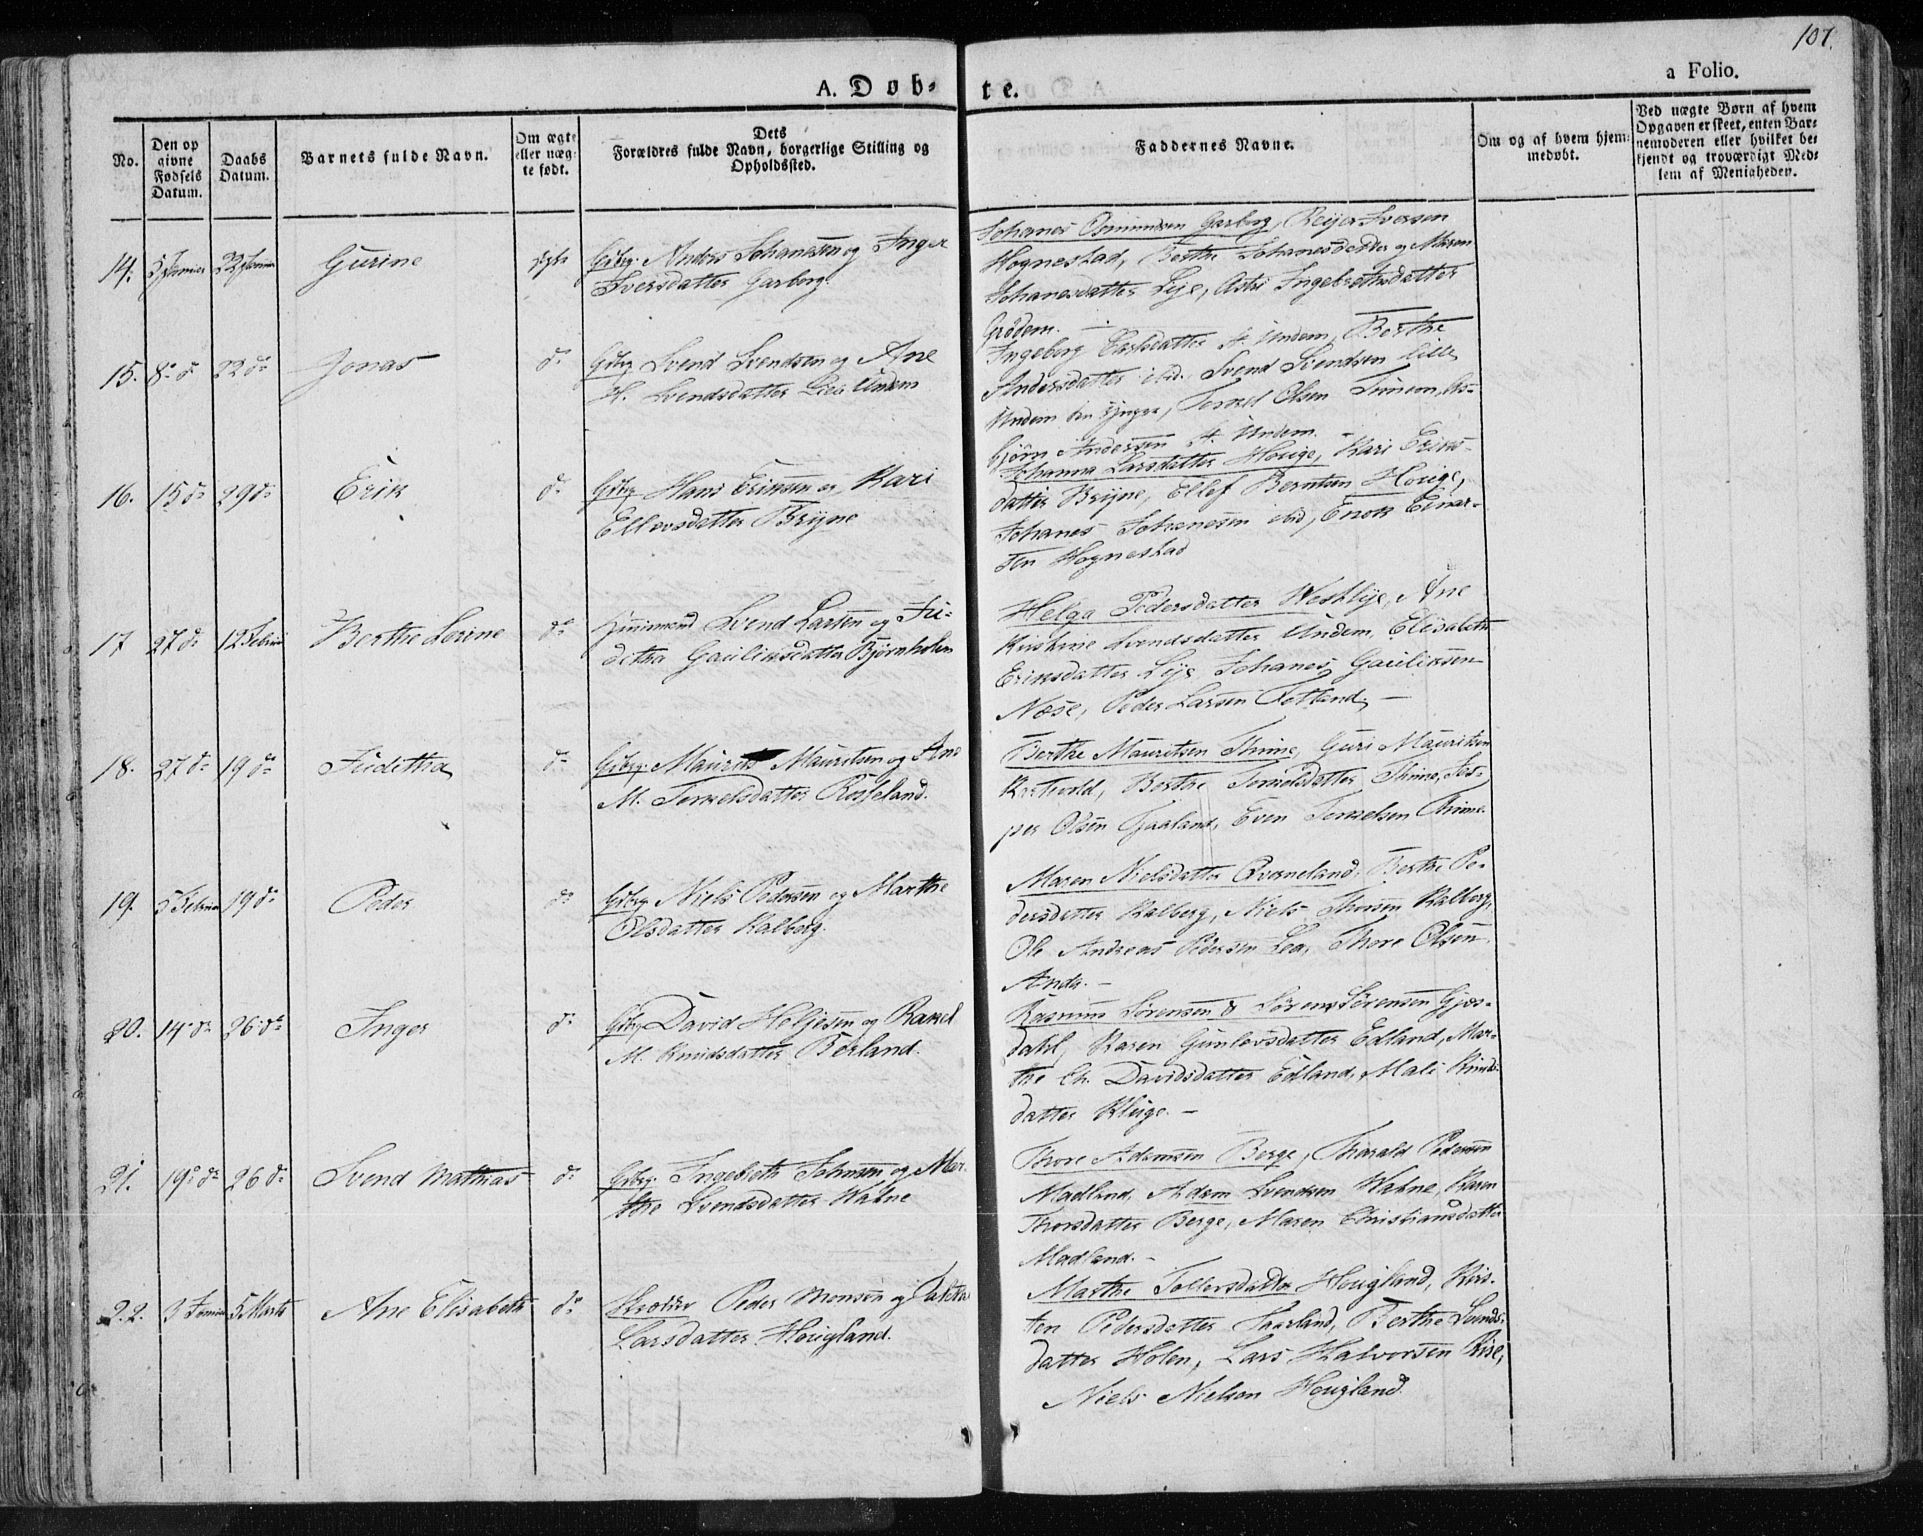 107.
a Folio.
A. Døb-
te.
No.
Den op
givne
Fødsels
Datum.
Daabs
Datum.
Barnets fulde Navn.
Om ægte
eller uæg-
te født.
Dets
Forældres fulde Navn, borgerlige Stilling og
Opholdssted.
Faddernes Navne.
Om og af hvem hjem-
medøbt.
Ved uægte Børn af hvem
Opgaven er skeet, enten Bar-
nemoderen eller hvilket be-
kjendt og troværdigt Med-
lem af Menigheden.
14. 5 Januar 22 Januar Gurine ægte Gdbrg. Anders Johannesen og Inger
Iversdatter Garborg.
Johanes Osmundsen Garborg, Reijer Iversen
Hognestad, Berthe Johanesdatter og Maren
Johanesdatter Lye, Astri Ingebrethsdatter
Grødem. —
15. 8de do 22 do Jonas do Gdbrg Svend Svendsen og Ane
H. Svendsdatter Lille Undem
Ingeborg Larsdatter St. Undem, Berthe
Andersdatter ibid. Svend Svendsen Lille
Undem den yngre, Torkel Olsen Tunem, As-
bjørn Andersen St. Undem. —
16. 15 do 29 do Erik do Gdbrg Hans Eriksen og Kari
Ellevsdatter Bryne
Johanna Larsdatter Houge, Kari Eriks-
datter Bryne, Ellef Berntsen Houge,
Johanes Johanesen ibid, Enok Einar-
sen Hognestad
17 27 do 12 Februar Berthe Lovine do Huusmand Svend Larsen og Ju-
ditha Gauliksdatter Bjørnholen
Helga Pedersdatter Westlye, Ane
Kirstine Svendsdatter Undem, Elisabeth
Eriksdatter Lye, Johanes Gauliksen
Næse, Peder Larsen Fotland. —
18. 27 do 19 do Juditha do Gdbrg. Maurits Mauritsen og Ane
M. Torkelsdatter Rosseland.
Berthe Mauritsen Thime, Guri Mauritsen
Kartvold, Berthe Torkelsdatter Thime, Jes-
per Olsen Gaaland, Even Torkelsen Thime.
19. 5 Februar 19 do Peder do Gdbrg. Niels Pedersen og Marthe
Olsdatter Kalberg.
Maren Nielsdatter Qværneland, Berthe Pe-
dersdatter Kalberg, Niels Thorsen Kalberg,
Ole Andreas Pedersen Lea, Thore Olsen
Anda. —
20. 14 do 26 do Inger do Gdbrg David Heljesen og Rakel
M. Knudsdatter Berland.
Rasmus Sørensen & Søren Sørensen Gjes-
dahl, Karen Gunlovsdatter Edland, Mar-
the Ch. Davidsdatter Edland, Mali Knuds-
datter Kluge. —
21. 19de do 26 do Svend Mathias do Gdbrg. Ingebreth Johnsen og Mar-
the Svendsdatter Watne
Thore Adamsen Berge, Tharald Pedersen
Madland, Adam Svendsen Watne, Karen
Thorsdatter Berge, Maren Christiansdatter
Madland. —
22. 9 Januar 5 Marts Ane Elisabeth do Peder Monsen og
Larsdatter Hougland.
Marthe Tollefsdatter Hougland, Kirs-
ten Pedersdatter Taarland, Berthe Svends-
datter Holen, Lars Halvorsen Rise,
Niels Nielsen Hougland.